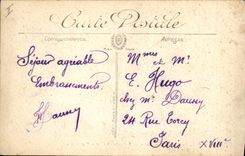 Carte Postale
Correspondance
Adresse
Séjour agréable
Embrassements
Mmes et Mr
E. Hugo
chez Mr Dauny
24 Rue Torcy
Paris XVIIIe